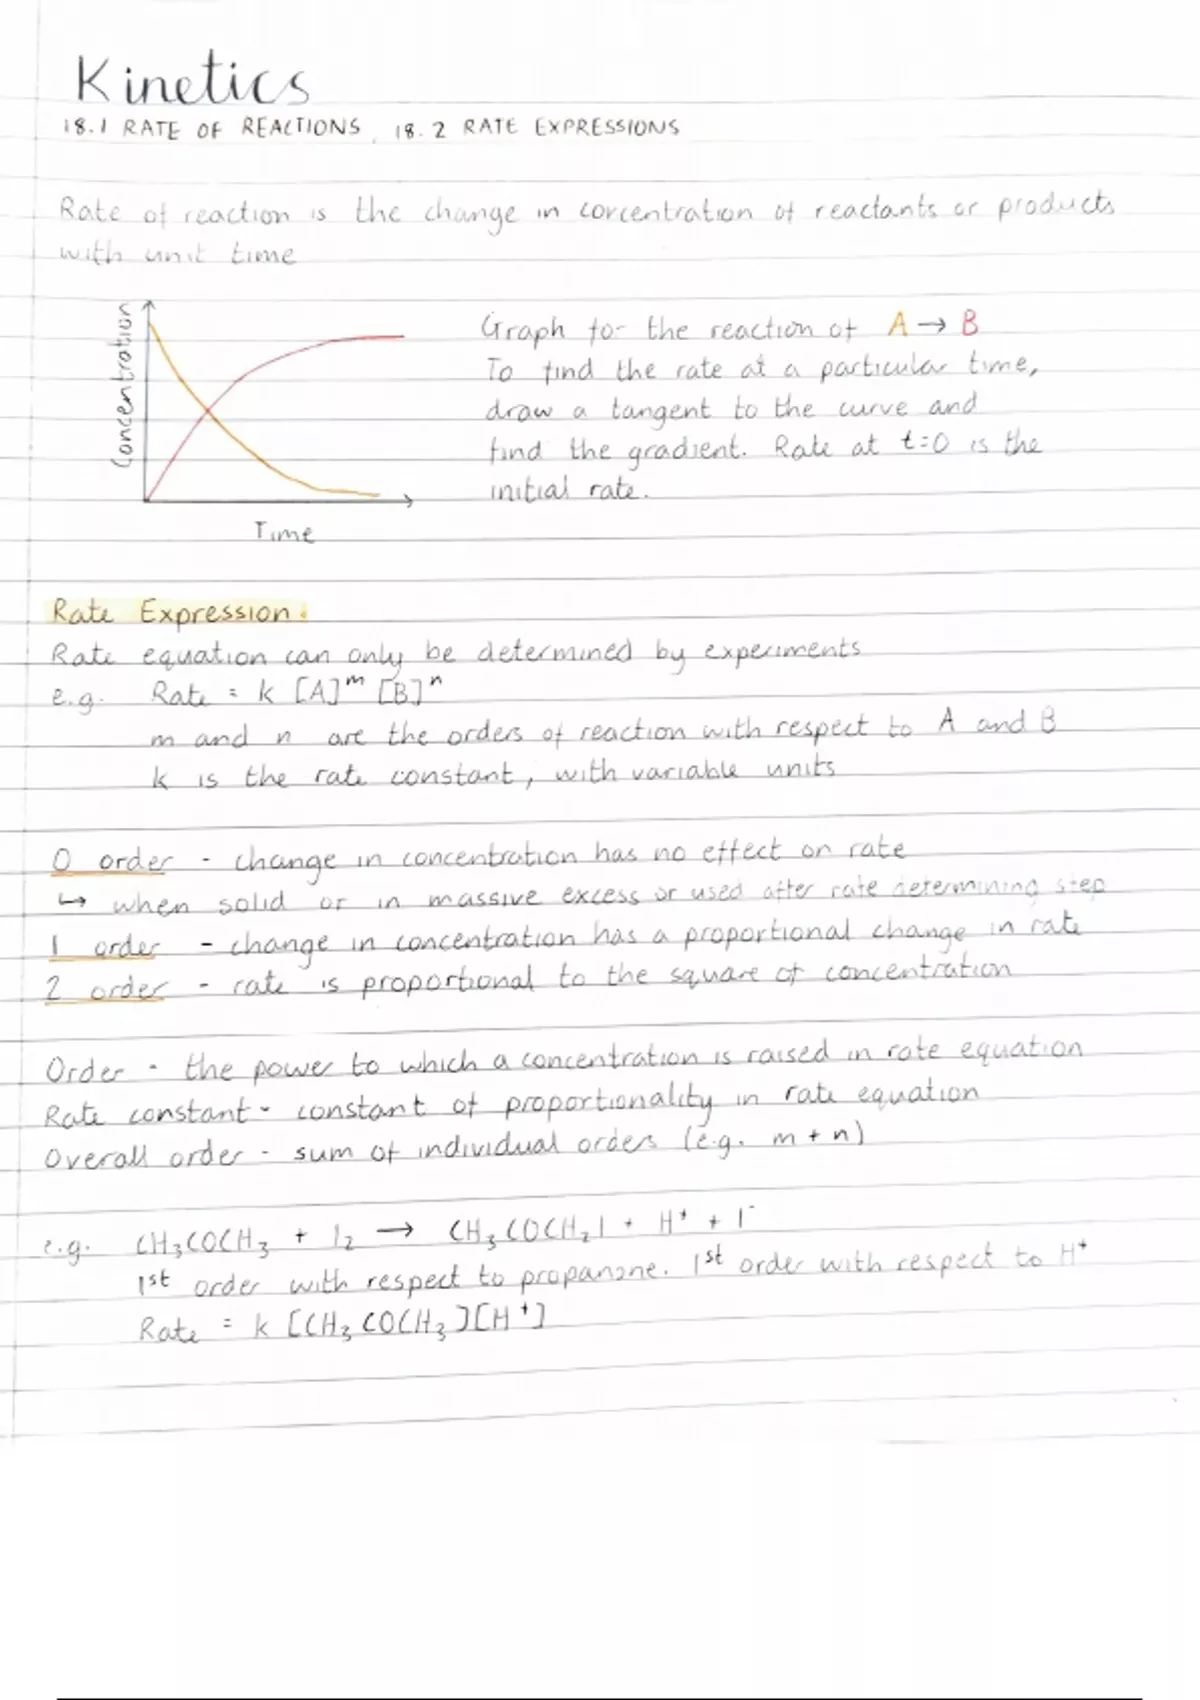 Kinetics
18.1 RATE OF REACTIONS, 18.2 RATE EXPRESSIONS
Rate of reaction is the change in concentration of reactants or products
with unit time
Concentration
Time
Graph for the reaction of A → B
To find the rate at a particular time,
draw a tangent to the curve and
find the gradient. Rate at t=0 is the
initial rate.
Rate Expression.
Rate equation can only be determined by experiments
e.g. Rate = k [A]ᵐ [B]ⁿ
m and n are the orders of reaction with respect to A and B
k is the rate constant, with variable units
0 order - change in concentration has no effect on rate
↳ when solid or in massive excess or used after rate determining step
1 order - change in concentration has a proportional change in rate
2 order - rate is proportional to the square of concentration
Order - the power to which a concentration is raised in rate equation
Rate constant - constant of proportionality in rate equation
Overall order - sum of individual orders (e.g. m + n)
e.g. CH₃COCH₃ + I₂ → CH₃COCH₂I + H⁺ + I⁻
1st order with respect to propanone. 1st order with respect to H⁺
Rate = k [CH₃COCH₃][H⁺]